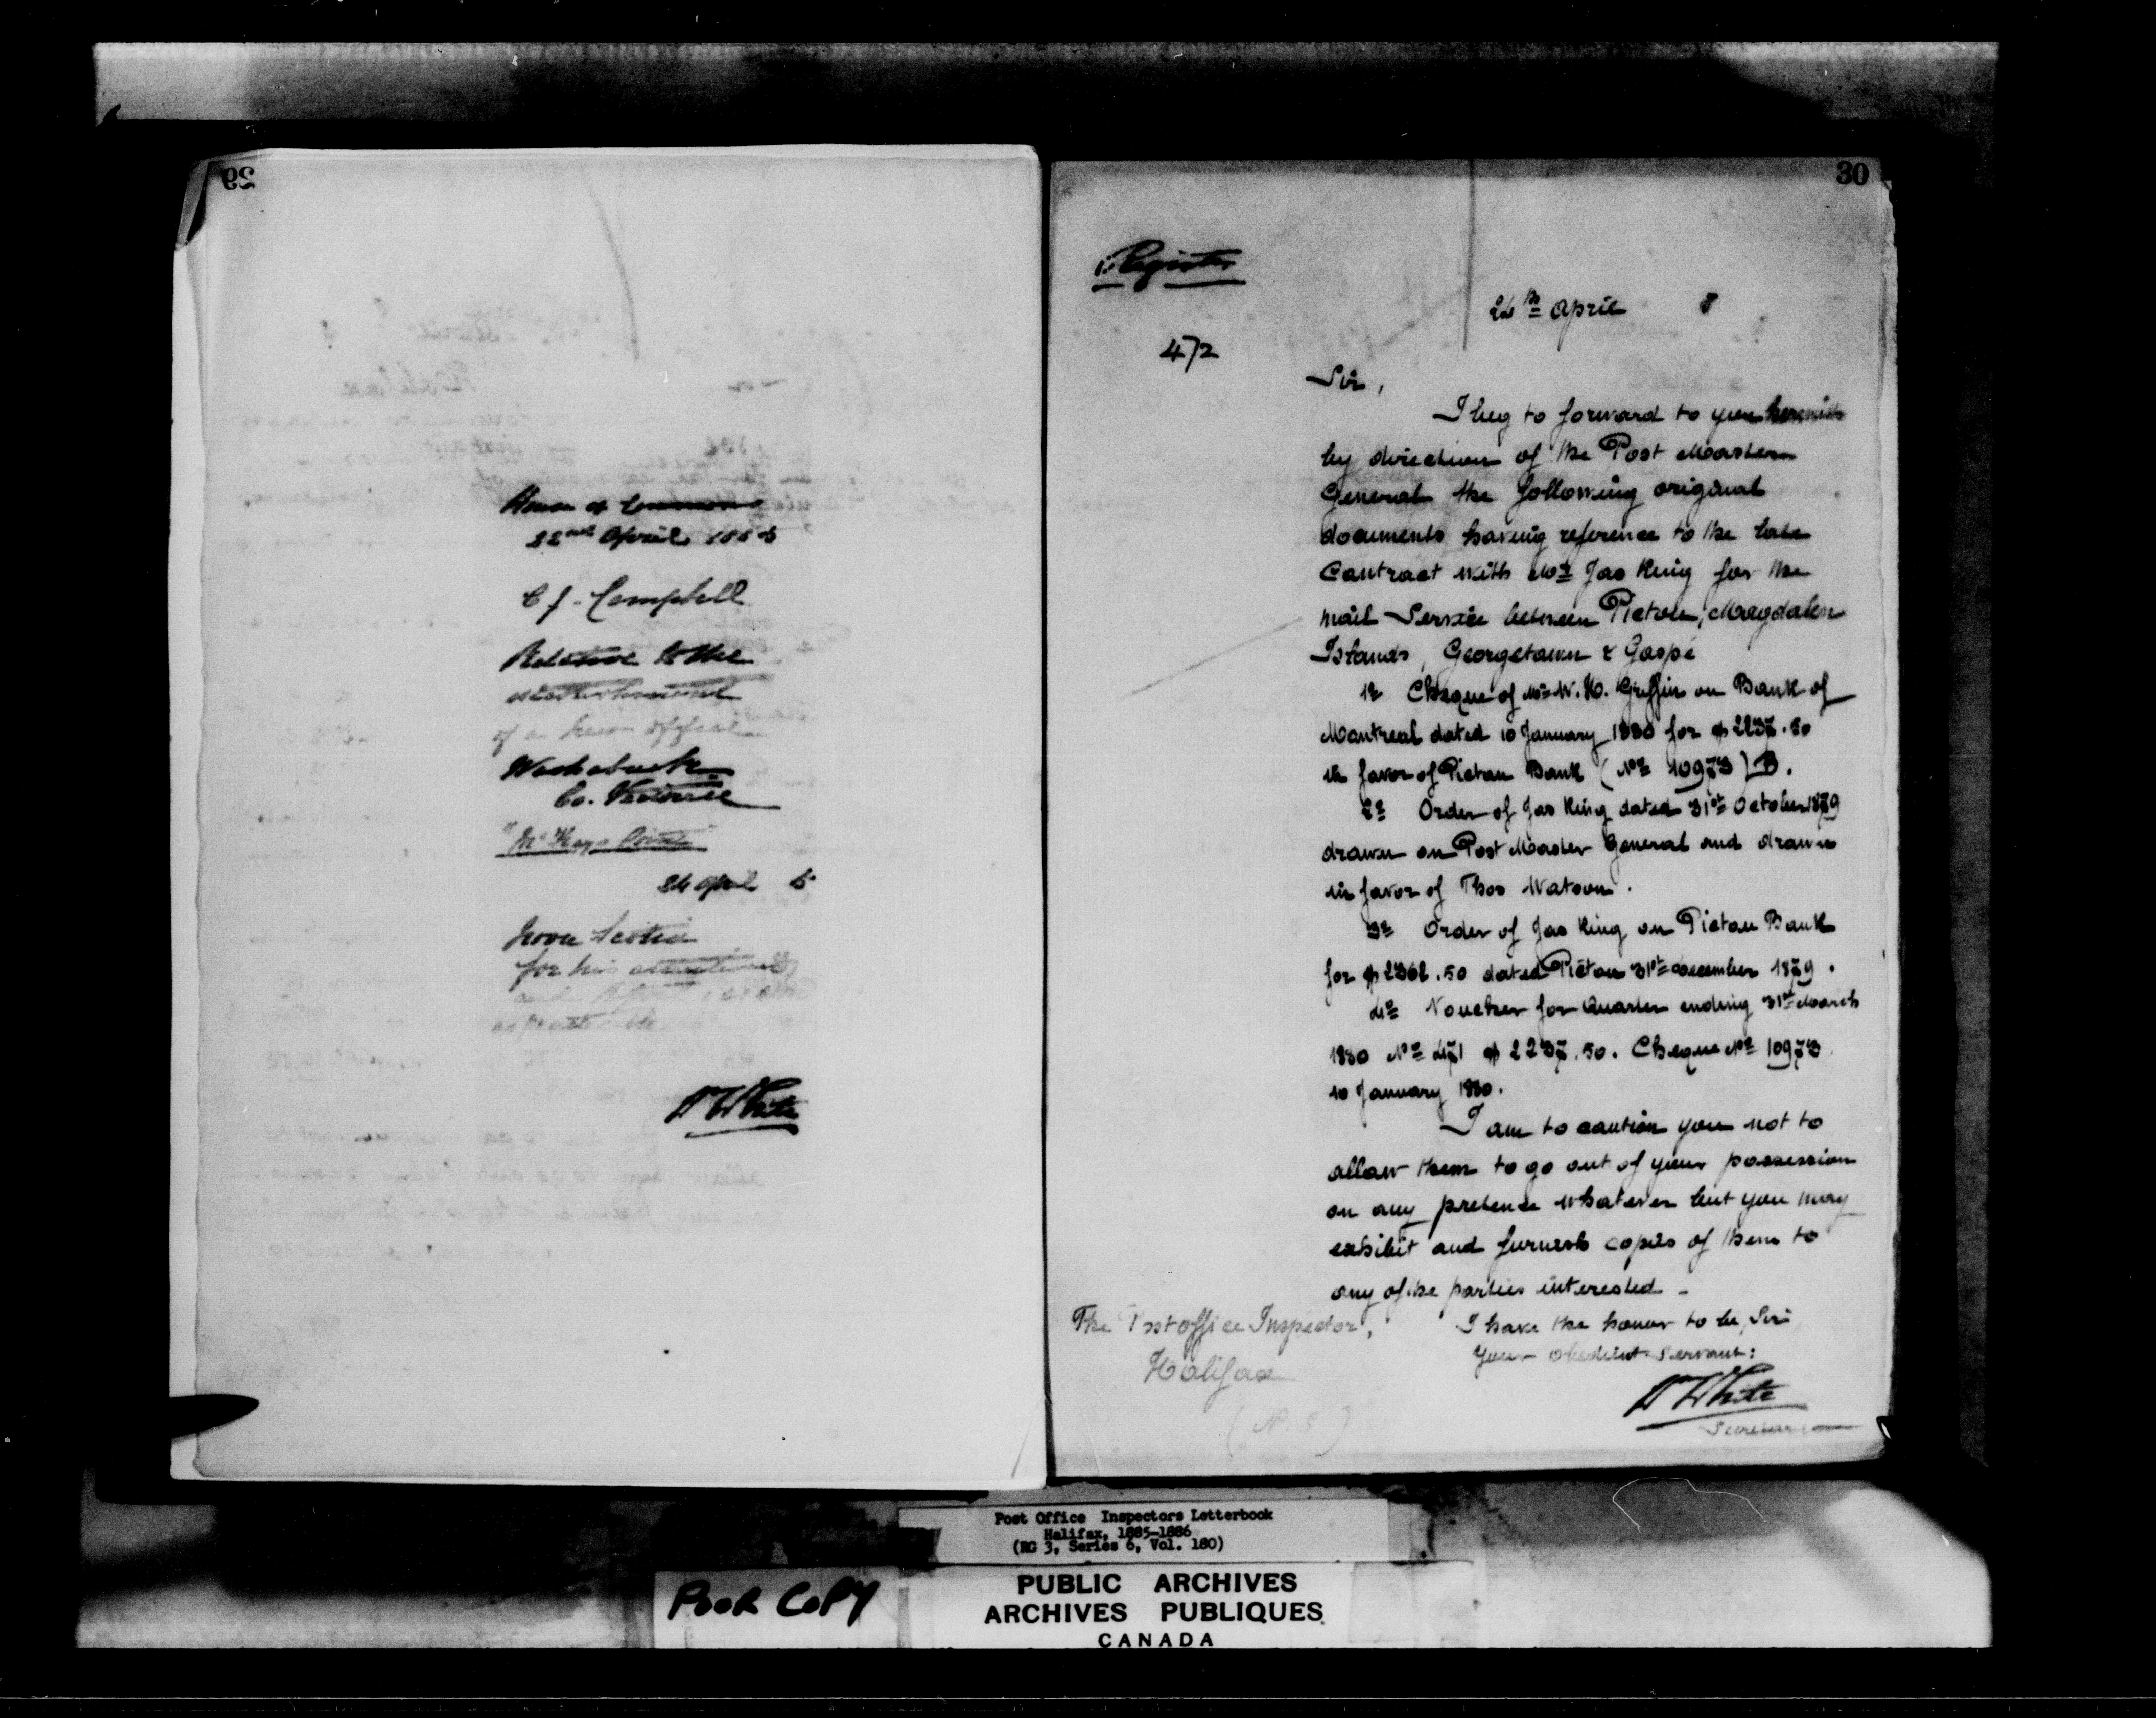 29
House of Commons
22nd April 1885
C J. Campbell
Relative to the
establishment
of a new office
Washabuck
Co. Victoria
"McKays Point"
24 April 5
Nova Scotia
for his attention
and report, as soon
as practicable
W White
30
Register
24th April 5
472
Sir,
I beg to forward to you herewith
by direction of the Post Master
General the following original
documents having reference to the late
Contract with Mr Jas King for the
mail Service between Pictou, Magdalen
Islands, Georgetown & Gaspé
1º Cheque of Mr W. H. Griffin on Bank of
Montreal dated 10 January 1880 for $2237.50
in favor of Pictou Bank (Nº 10973) B.
2º Order of Jas King dated 31st October 1879
drawn on Post Master General and drawn
in favor of Thos Watson.
3º Order of Jas King on Pictou Bank
for $2362.50 dated Pictou 31st December 1879.
4º Voucher for Quarter ending 31st March
1880 Nº 471 $2237.50. Cheque Nº 10973
10 January 1880.
I am to caution you not to
allow them to go out of your possession
on any pretence whatever but you may
exhibit and furnish copies of them to
any of the parties interested -
The Post office Inspector, I have the honor to be, Sir
Your Obedient Servant:
Halifax
W White
(N. S) Secretary
Post Office Inspectors Letterbook
Halifax, 1885-1886
(RG 3, Series 6, Vol. 180)
POOR COPY
PUBLIC ARCHIVES
ARCHIVES PUBLIQUES
CANADA